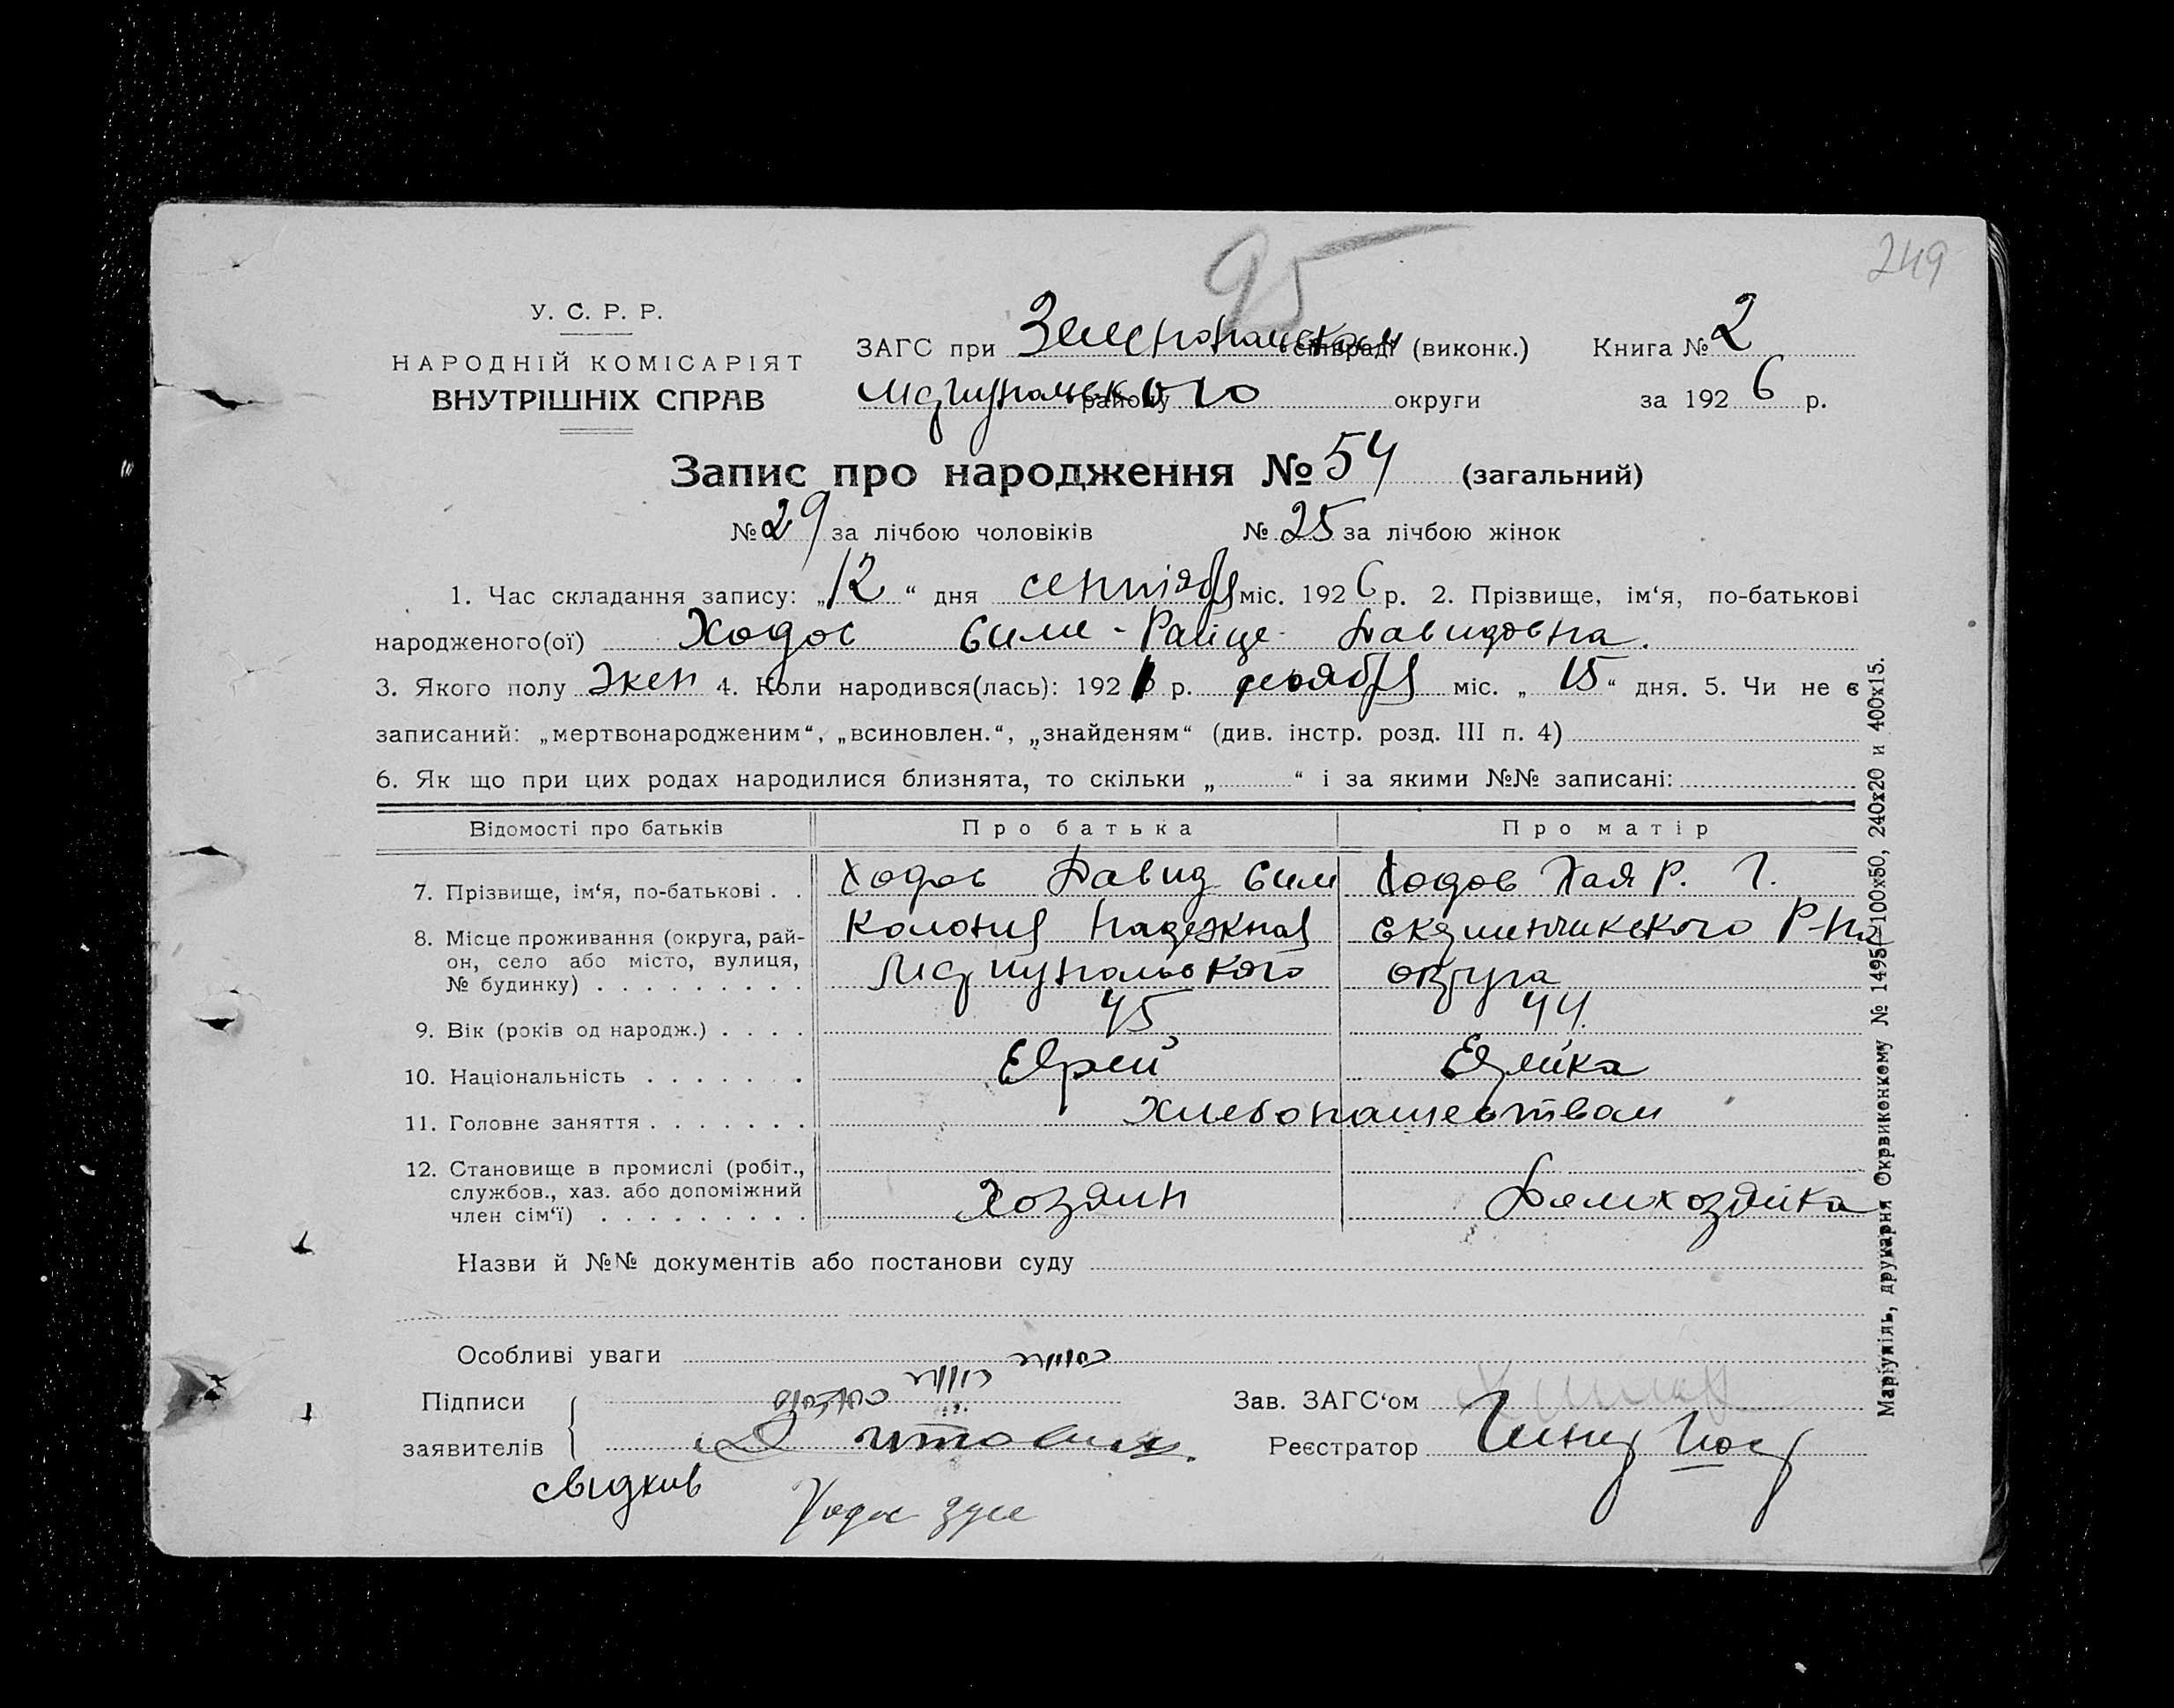 95
249
У. С. Р. Р.
НАРОДНІЙ КОМІСАРІЯТ
ВНУТРІШНІХ СПРАВ
ЗАГС при Зеленопольском сільраді (виконк.) Книга № 2
Мариупольского району округи за 1926 р.
Запис про народження № 54 (загальний)
№ 29 за лічбою чоловіків № 25 за лічбою жінок
1. Час складання запису: „12“ дня сентября міс. 1926 р. 2. Прізвище, ім‘я, по-батькові
народженого(ої) Ходос Симе-Райце Давидовна.
3. Якого полу жен 4. Коли народився(лась): 192 р. декабря міс. „15“ дня. 5. Чи не є
записаний: „мертвонародженим“, „всиновлен.“, „знайденям“ (див. інстр. розд. III п. 4)
6. Як що при цих родах народилися близнята, то скільки „ “ і за якими №№ записані:
Відомості про батьків Про батька Про матір
7. Прізвище, ім‘я, по-батькові . . Ходос Давид Сим Ходос Хая Р. Г.
8. Місце проживання (округа, рай- Колония Надежная Р-на
он, село або місто, вулиця, Мариупольского округа
№ будинку) . . . . . . . . .
9. Вік (років од народж.) . . . . 45 44.
10. Національність . . . . . . . Еврей Еврейка
11. Головне заняття . . . . . . . Хлебопашеством
12. Становище в промислі (робіт.,
службов., хаз. або допоміжний Хозяин Домхозяйка
член сім‘ї) . . . . . . . . .
Назви й №№ документів або постанови суду
Особливі уваги
Підписи Зав. ЗАГС‘ом
заявителів Реєстратор
свидкив
Ходос
Маріупіль, друкарня Окрвиконкому № 1495—100х50, 240х20 и 400х15.